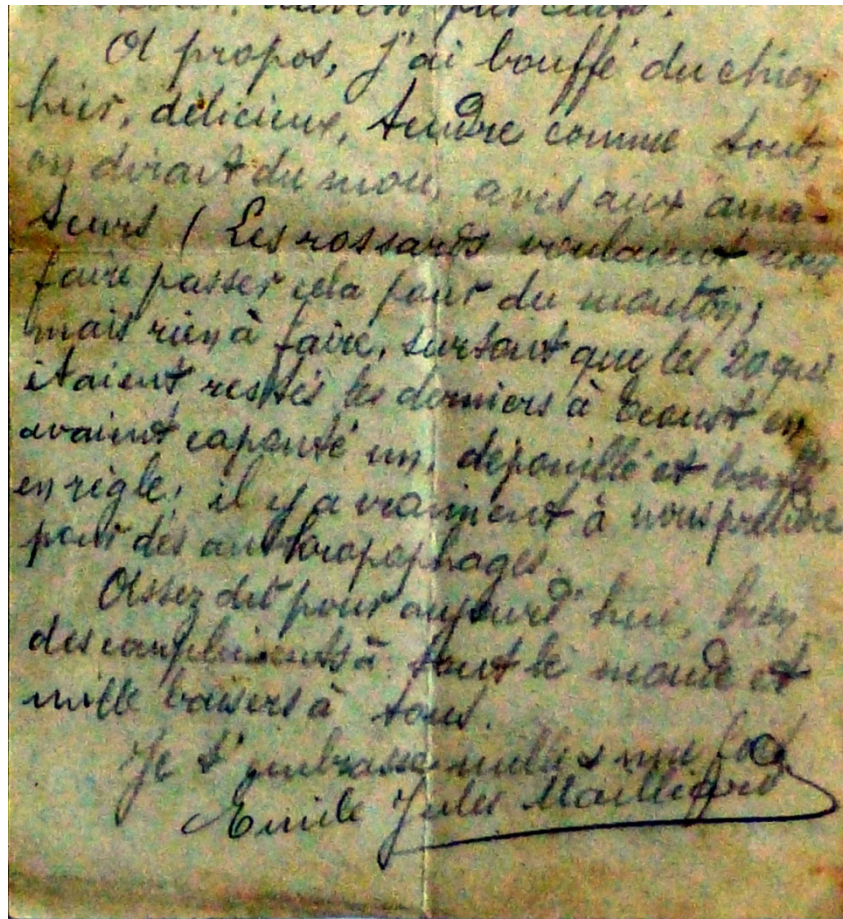 A propos, j'ai bouffé du chien
hier, délicieux, tendre comme tout,
on dirait du mou, avis aux ama-
teurs ! Les rossards voulaient nous
faire passer cela pour du mouton;
mais rien à faire, surtout que les 20 qui
étaient restés les derniers à Ecoust en
avaient capouté un, dépouillé et
en règle; il y a vraiment à nous prendre
pour des anthropophages.
Assez dit pour aujourd'hui, bien
des compliments à tout le monde et
mille baisers à tous.
Je t'embrasse mille & une fois
Emile Jules